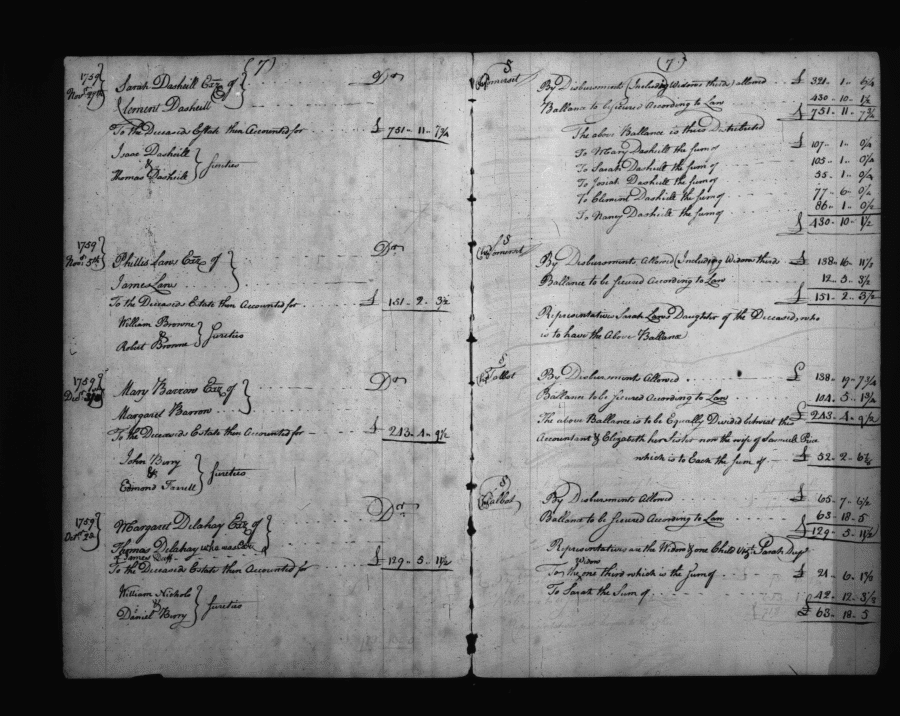 (7)
1759
Novr 27th
Sarah Dashiell Exx of
Clement Dashiell
Dr
To the Deceaseds Estate then Accounted for £ 751 - 11 - 7 3/4
Isaac Dashiell
&
Thomas Dashiell
Sureties
1759
Novr 5th
Phillis Laws Exx of
James Laws
Dr
To the Deceaseds Estate then Accounted for £ 151 - 2 - 3 1/2
William Browne
&
Robert Browne
Sureties
1759
Mary Barrow Exx of
Margaret Barrow
Dr
To the Deceaseds Estate then Accounted for £ 243 - 4 - 9 1/2
John Berry
&
Edmond Farrell
Sureties
1759
Octr
Margaret Delahay Exx of
Thomas Delahay who was Exr
of James
Dr
To the Deceaseds Estate then Accounted for £ 129 - 5 - 11 1/2
William Nichols
&
Daniel Berry
Sureties
(7)
Somerset
By Disbursments (Including Widows thirds) allowed £ 321 - 1 - 6 1/4
Ballance to be Secured According to Law 430 - 10 - 1 1/2
£ 751 - 11 - 7 3/4
The above Ballance is thus Distributed
To Mary Dashiell the Sum of £ 107 - 1 - 0 1/4
To Sarah Dashiell the Sum of 105 - 1 - 0 1/4
To Josiah Dashiell the Sum of 55 - 1 - 0 1/4
To Clement Dashiell the Sum of 77 - 6 - 0 1/4
To Nancy Dashiell the Sum of 86 - 1 - 0 1/2
£ 430 - 10 - 1 1/2
Somerset
By Disbursments Allowed (Including Widows thirds £ 138 - 16 - 11 1/2
Ballance to be Secured According to Law 12 - 5 - 3 1/2
£ 151 - 2 - 3 1/2
Representatives Sarah Laws Daughter of the Deceased, who
is to have the Above Ballance
Talbot
By Disbursments Allowed £ 138 - 19 - 7 3/4
Ballance to be Secured According to Law 104 - 5 - 1 3/4
£ 243 - 4 - 9 1/2
The above Ballance is to be Equally Divided betwixt this
Accountant & Elizabeth her Sister now the wife of Samuel
which is to Each the Sum of £ 52 - 2 - 6
Talbot
By Disbursments Allowed £ 65 - 7 - 6 1/2
Ballance to be Secured According to Law 63 - 18 - 5
£ 129 - 5 - 11 1/2
Representatives are the Widow & one Child Vizt Sarah
To the Widows one third which is the Sum of £ 21 - 6 - 1 1/2
To Sarah the Sum of 42 - 12 - 3 1/2
£ 63 - 18 - 5